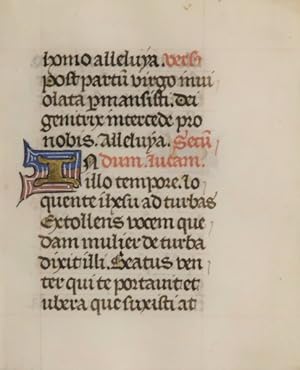 homo alleluya. vers̃
Post partũ virgo invi
olata ꝑmansisti. dei
genitrix intercede pro
nobis. Alleluya. Secũ
dum lucam.
In
illo tempore. lo
quente ihesu ad turbas
Extollens vocem que
dam mulier de turba
dixit illi. Beatus ven
ter qui te portavit et
ubera que suxisti at